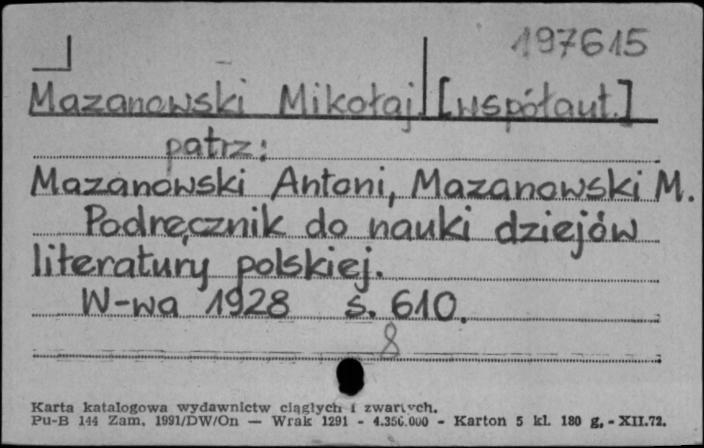 197615
Mazanowski Mikołaj [współaut.]
patrz:
Mazanowski Antoni, Mazanowski M.
Podręcznik do nauki dziejów
literatury polskiej.
W-wa 1928 s. 610.
8
Karta katalogowa wydawnictw ciągłych i zwartych.
Pu-B 144 Zam. 1991/DW/On — Wrak 1291 - 4.356.000 - Karton 5 kl. 180 g, - XII.72.